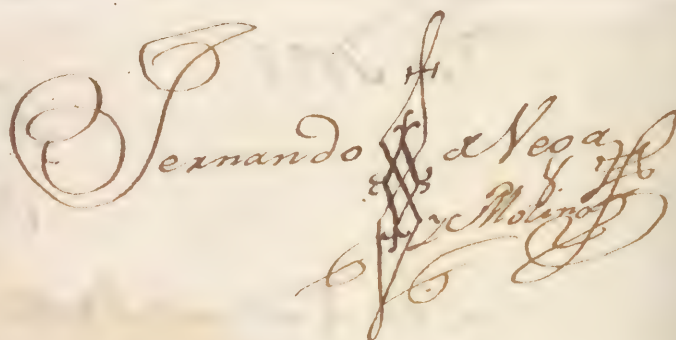 Fernando de Vega
y Molina